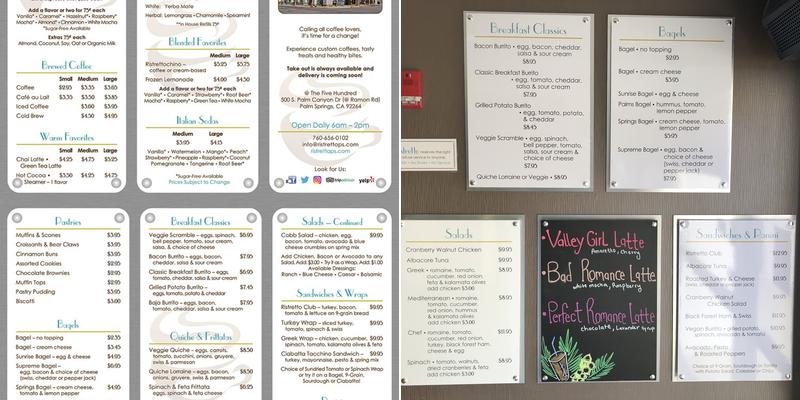 Add a flavor or two for 75¢ each
Vanilla • Caramel* • Hazelnut* • Raspberry
Mocha* • Almond* • Cinnamon • White Mocha
*Sugar-Free Available
Extras 75¢ each
Almond, Coconut, Soy, Oat or Organic Milk
Brewed Coffee
Small Medium Large
Coffee $2.95 $3.35 $3.60
Café au Lait $3.35 $3.50 $3.85
Iced Coffee $3.60 $3.95
Cold Brew $4.50 $4.95
Warm Favorites
Small Medium Large
Chai Latte • $4.25 $4.75 $5.25
Green Tea Latte
Hot Cocoa • $3.50 $4.25 $4.75
Steamer – 1 flavor
White: Yerba Mate
Herbal: Lemongrass • Chamomile • Spearmint
**In House Refills 75¢
Blended Favorites
Medium Large
Ristrettochino – $5.25 $5.75
coffee or cream-based
Frozen Lemonade $4.00 $4.50
Add a flavor or two for 75¢ each
Vanilla • Caramel* • Strawberry* • Root Beer*
Mocha* • Raspberry* • Green Tea • White Mocha
Italian Sodas
Medium Large
$3.95 $4.50
Vanilla • Watermelon • Mango • Peach*
Strawberry* • Pineapple • Raspberry* • Coconut
Pomegranate • Tangerine • Root Beer*
*Sugar-Free Available
Prices Subject to Change
Calling all coffee lovers,
it's time for a change!
Experience custom coffees, tasty
treats and healthy bites.
Take out is always available and
delivery is coming soon!
@ The Five Hundred
500 S. Palm Canyon Dr (@ Ramon Rd)
Palm Springs, CA 92264
Open Daily 6am – 2pm
760-656-0102
info@ristrettops.com
ristrettops.com
Look for Us:
tripadvisor yelp
Pastries
Muffins & Scones $3.95
Croissants & Bear Claws $3.95
Cinnamon Buns $3.95
Assorted Cookies $2.95
Chocolate Brownies $2.95
Muffin Tops $2.95
Pasky Pudding $3.95
Biscotti $3.00
Bagels
Bagel – no topping $2.35
Bagel – cream cheese $3.45
Sunrise Bagel – egg & cheese $4.95
Supreme Bagel –
egg, bacon & choice of cheese
(swiss, cheddar or pepper jack)
Springs Bagel – cream cheese, $4.95
tomato & lemon pepper
Breakfast Classics
Veggie Scramble – eggs, spinach, $6.95
bell pepper, tomato, sour cream,
salsa, & choice of cheese
Bacon Burrito – eggs, bacon, $7.95
tomato, cheddar, salsa & sour cream
Classic Breakfast Burrito – eggs, $6.95
tomato, cheddar, salsa & sour cream
Grilled Potato Burrito – $7.45
eggs, tomato, potato & cheddar
Baja Burrito – eggs, bacon, $7.95
tomato, cheddar, salsa & sour cream
Quiche & Frittatas
Veggie Quiche – eggs, carrots, $8.50
tomato, zucchini, onions, gruyere,
swiss & parmesan
Quiche Lorraine – eggs, bacon, $8.50
onions, gruyere, swiss & parmesan
Spinach & Feta Frittata $6.25
eggs, spinach, feta, tomato
Salads – Continued
Cobb Salad – chicken, egg, $9.95
bacon, tomato, avocado & blue
cheese crumbles on spring mix
Add Chicken, Bacon or Avocado to any
Salad. Add $3.00 • Try it as a Wrap. Add $1.00
Available Dressings:
Ranch • Blue Cheese • Caesar • Balsamic
Sandwiches & Wraps
Ristretto Club – turkey, bacon, $9.95
tomato & lettuce on 9-grain bread
Turkey Wrap – sliced turkey, $9.95
tomato, spinach & swiss
Greek Wrap – chicken, cucumber, $9.95
spinach, tomato, kalamata olives & feta
Ciabatta Tacchino Sandwich – $9.95
turkey, mayonnaise, pesto & spring mix
Choice of Sundried Tomato or Spinach Wrap
or try it on a Bagel, 9-Grain,
Sourdough or Ciabatta!
Breakfast Classics
Bacon Burrito • egg, bacon, cheddar,
salsa & sour cream
$8.95
Classic Breakfast Burrito
• egg, tomato, cheddar,
salsa & sour cream
$7.95
Grilled Potato Burrito
• egg, tomato, potato,
& cheddar
$8.45
Veggie Scramble • egg, spinach,
bell pepper, tomato,
salsa, sour cream &
choice of cheese
$7.95
Quiche Lorraine or Veggie • $8.95
Bagels
Bagel • no topping
$2.95
Bagel • cream cheese
$3.95
Sunrise Bagel • egg & cheese
Palms Bagel • hummus, tomato,
lemon pepper
Springs Bagel • cream cheese, tomato,
lemon pepper
$5.95
Supreme Bagel • egg, bacon &
choice of cheese
(swiss, cheddar or
pepper jack)
$7.95
reserves the right
Salads
Cranberry Walnut Chicken $9.95
Albacore Tuna $9.95
Greek • romaine, tomato, $8.95
cucumber, red onion,
feta & kalamata olives
add chicken $3.00
Mediterranean • romaine, $8.95
tomato, cucumber,
red onion, hummus
& kalamata olives
add chicken $3.00
Chef • romaine, tomato, $11.95
cucumber, red onion,
turkey, black forest ham,
cheese & egg
Spinach • tomato, walnuts, $8.95
dried cranberries & feta
add chicken $3.00
Valley Girl Latte
Amaretto, Cherry
Bad Romance Latte
white mocha, Raspberry
Perfect Romance Latte
chocolate, Lavender syrup
Sandwiches & Panini
Ristretto Club $12.95
Albacore Tuna $9.95
Roasted Turkey & Cheese
(swiss, cheddar or pepper jack)
Cranberry Walnut
Chicken Salad
Black Forest Ham & Swiss
Veggie Burrito • grilled potato,
spinach, avocado & tomato
Avocado, Pesto
& Roasted Peppers
Choice of 9-Grain, Sourdough or Tomato